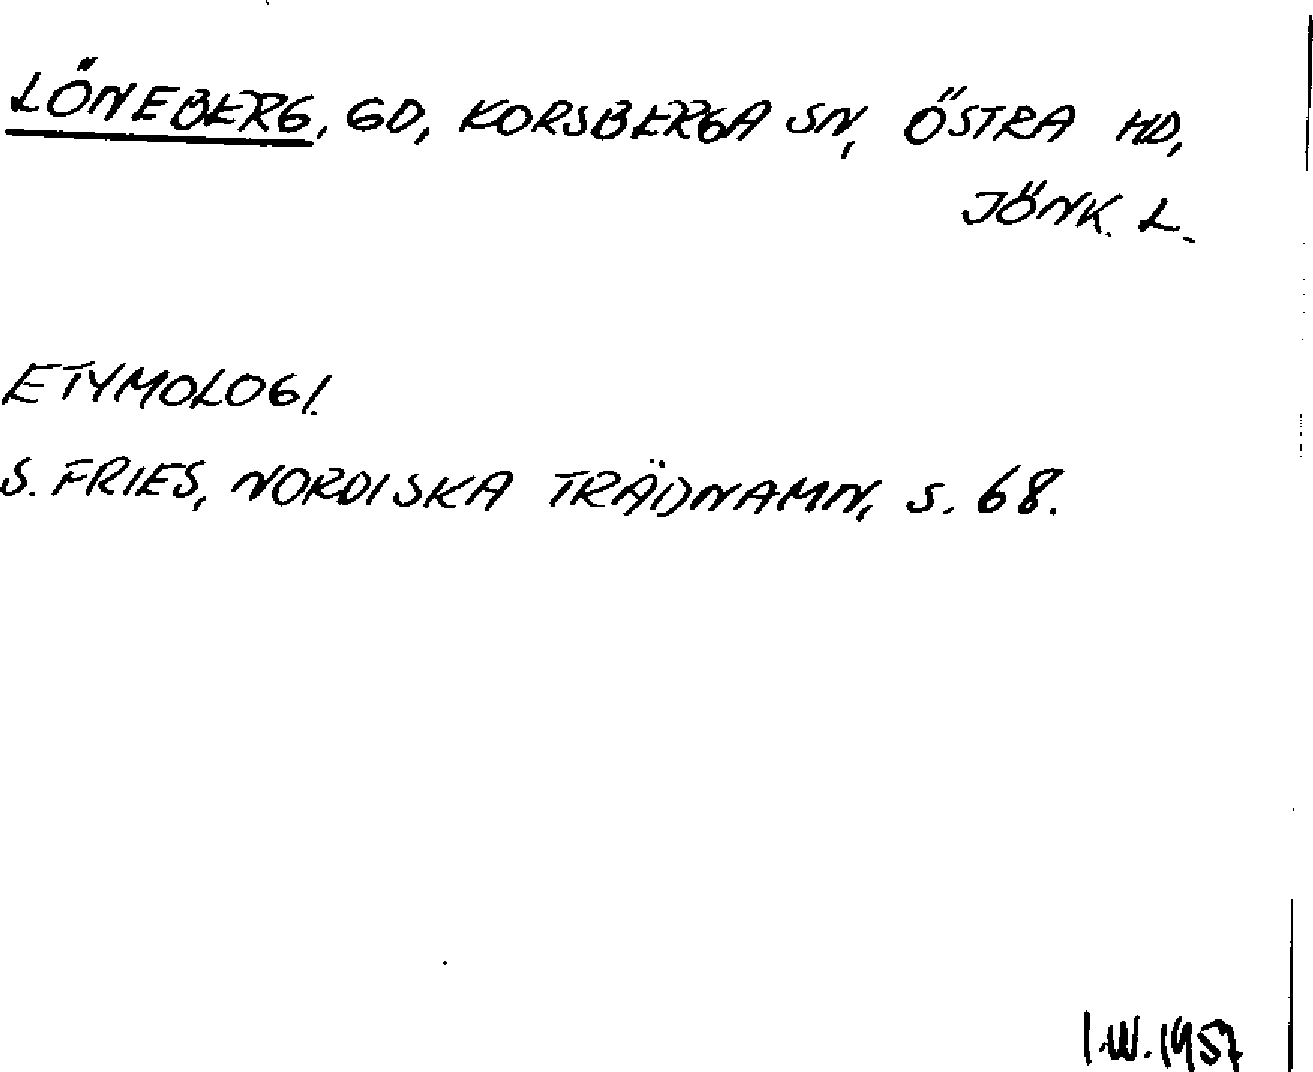 LÖNEBERG, GD, KORSBERGA SN, ÖSTRA HD,
JÖNK. L.
ETYMOLOGI.
S. FRIES, NORDISKA TRÄDNAMN, S. 68.
I.W. 1957